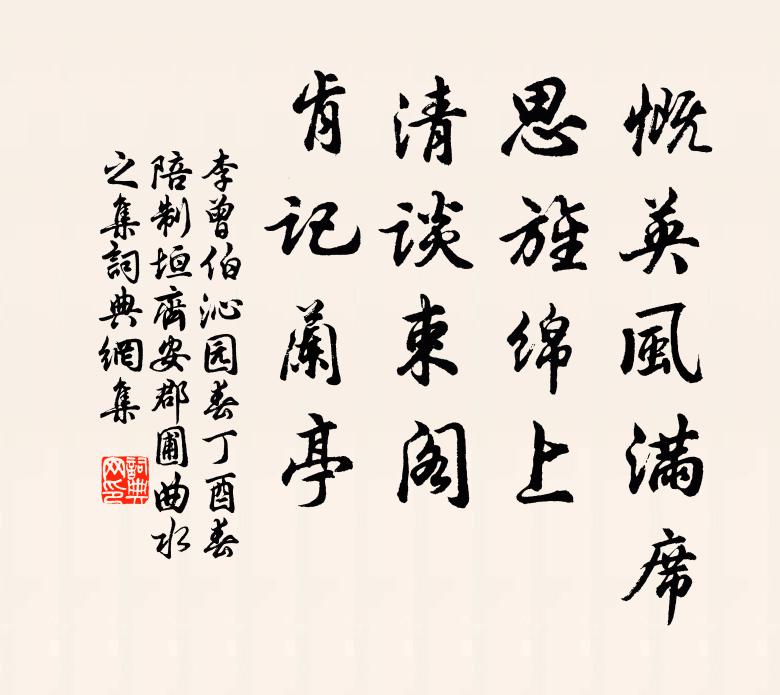 慨英風满席
思旌绵上
清谈東阁
肯记蘭亭
李曾伯沁园春丁酉春
陪制垣齊安郡圃曲水
之集詞典網集
詞典网印